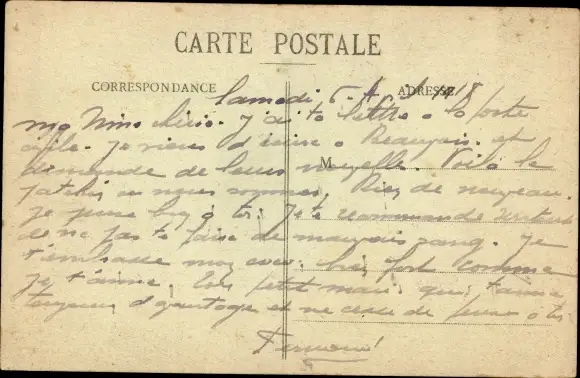 CARTE POSTALE
CORRESPONDANCE ADRESSE
Samedi 6 A 1918
ma Nine chérie. J'ai ta lettre a la poste
civile. Je viens d'écrire a Beauvais et
demande de leurs nouvelle. Voilà le
M
ou nous sommes. Rien de nouveau.
Je pense bien à toi. Je te recommande surtout
de ne pas te faire de mauvais sang. Je
t'embrasse mon coco bien fort comme
je t'aime. Ton petit mari qui t'aime
toujours d'avantage et ne cesse de penser a toi
Fernand